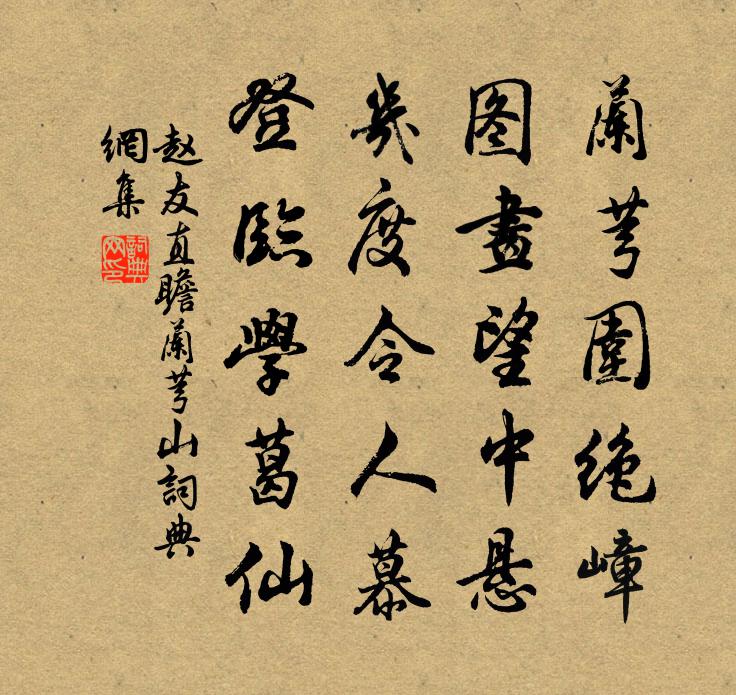 蘭芎圍絶嶂
图畫望中悬
幾度令人慕
登臨學葛仙
赵友直瞻蘭芎山詞典
網集
詞典网印